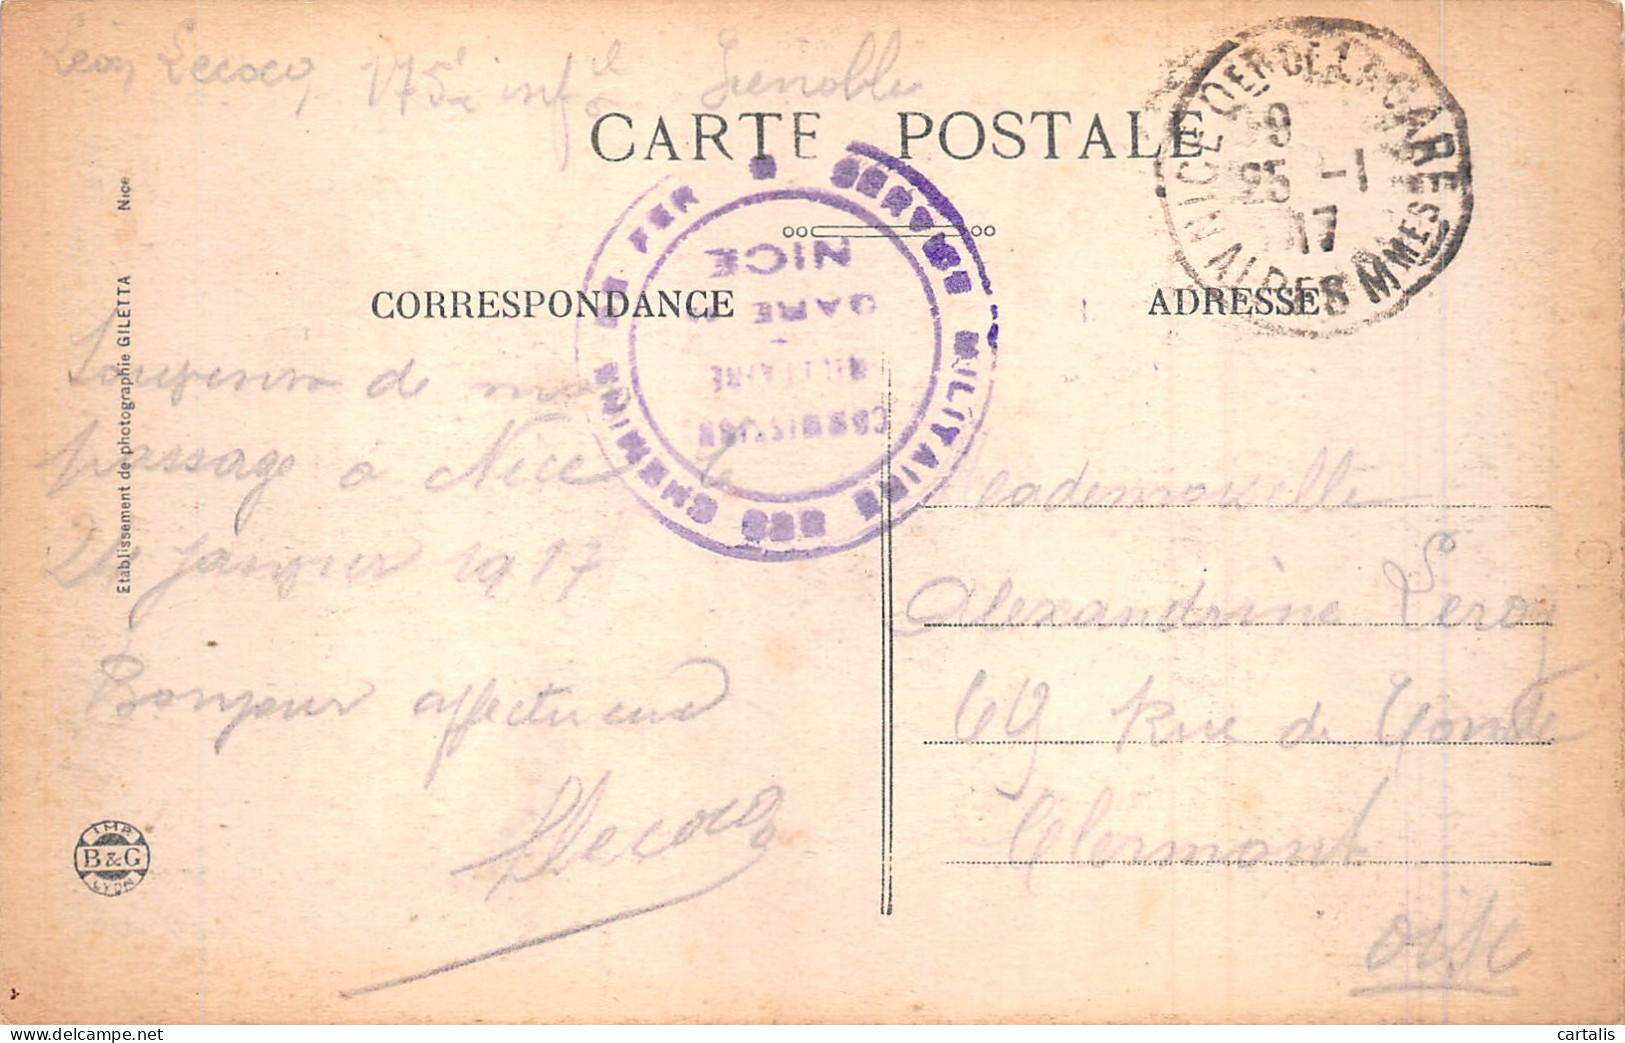 Léon Lecocq 175e inf Grenoble
CARTE POSTALE
NICE QER DE LA GARE
ALPES MMES
*9
25 -1
17
SERVICE MILITAIRE DES CHEMINS DE FER
NICE
GARE
MILITAIRE
COMMISSION
CORRESPONDANCE
ADRESSE
Souvenir de mon
passage à Nice le
24 Janvier 1917
Bonjour affectueux
Lecocq
Mademoiselle
Alexandrine Leroy
69 Rue de
Clermont
oise
Etablissement de photographie GILETTA Nice
IMP
B&G
LYON
www.delcampe.net
cartalis